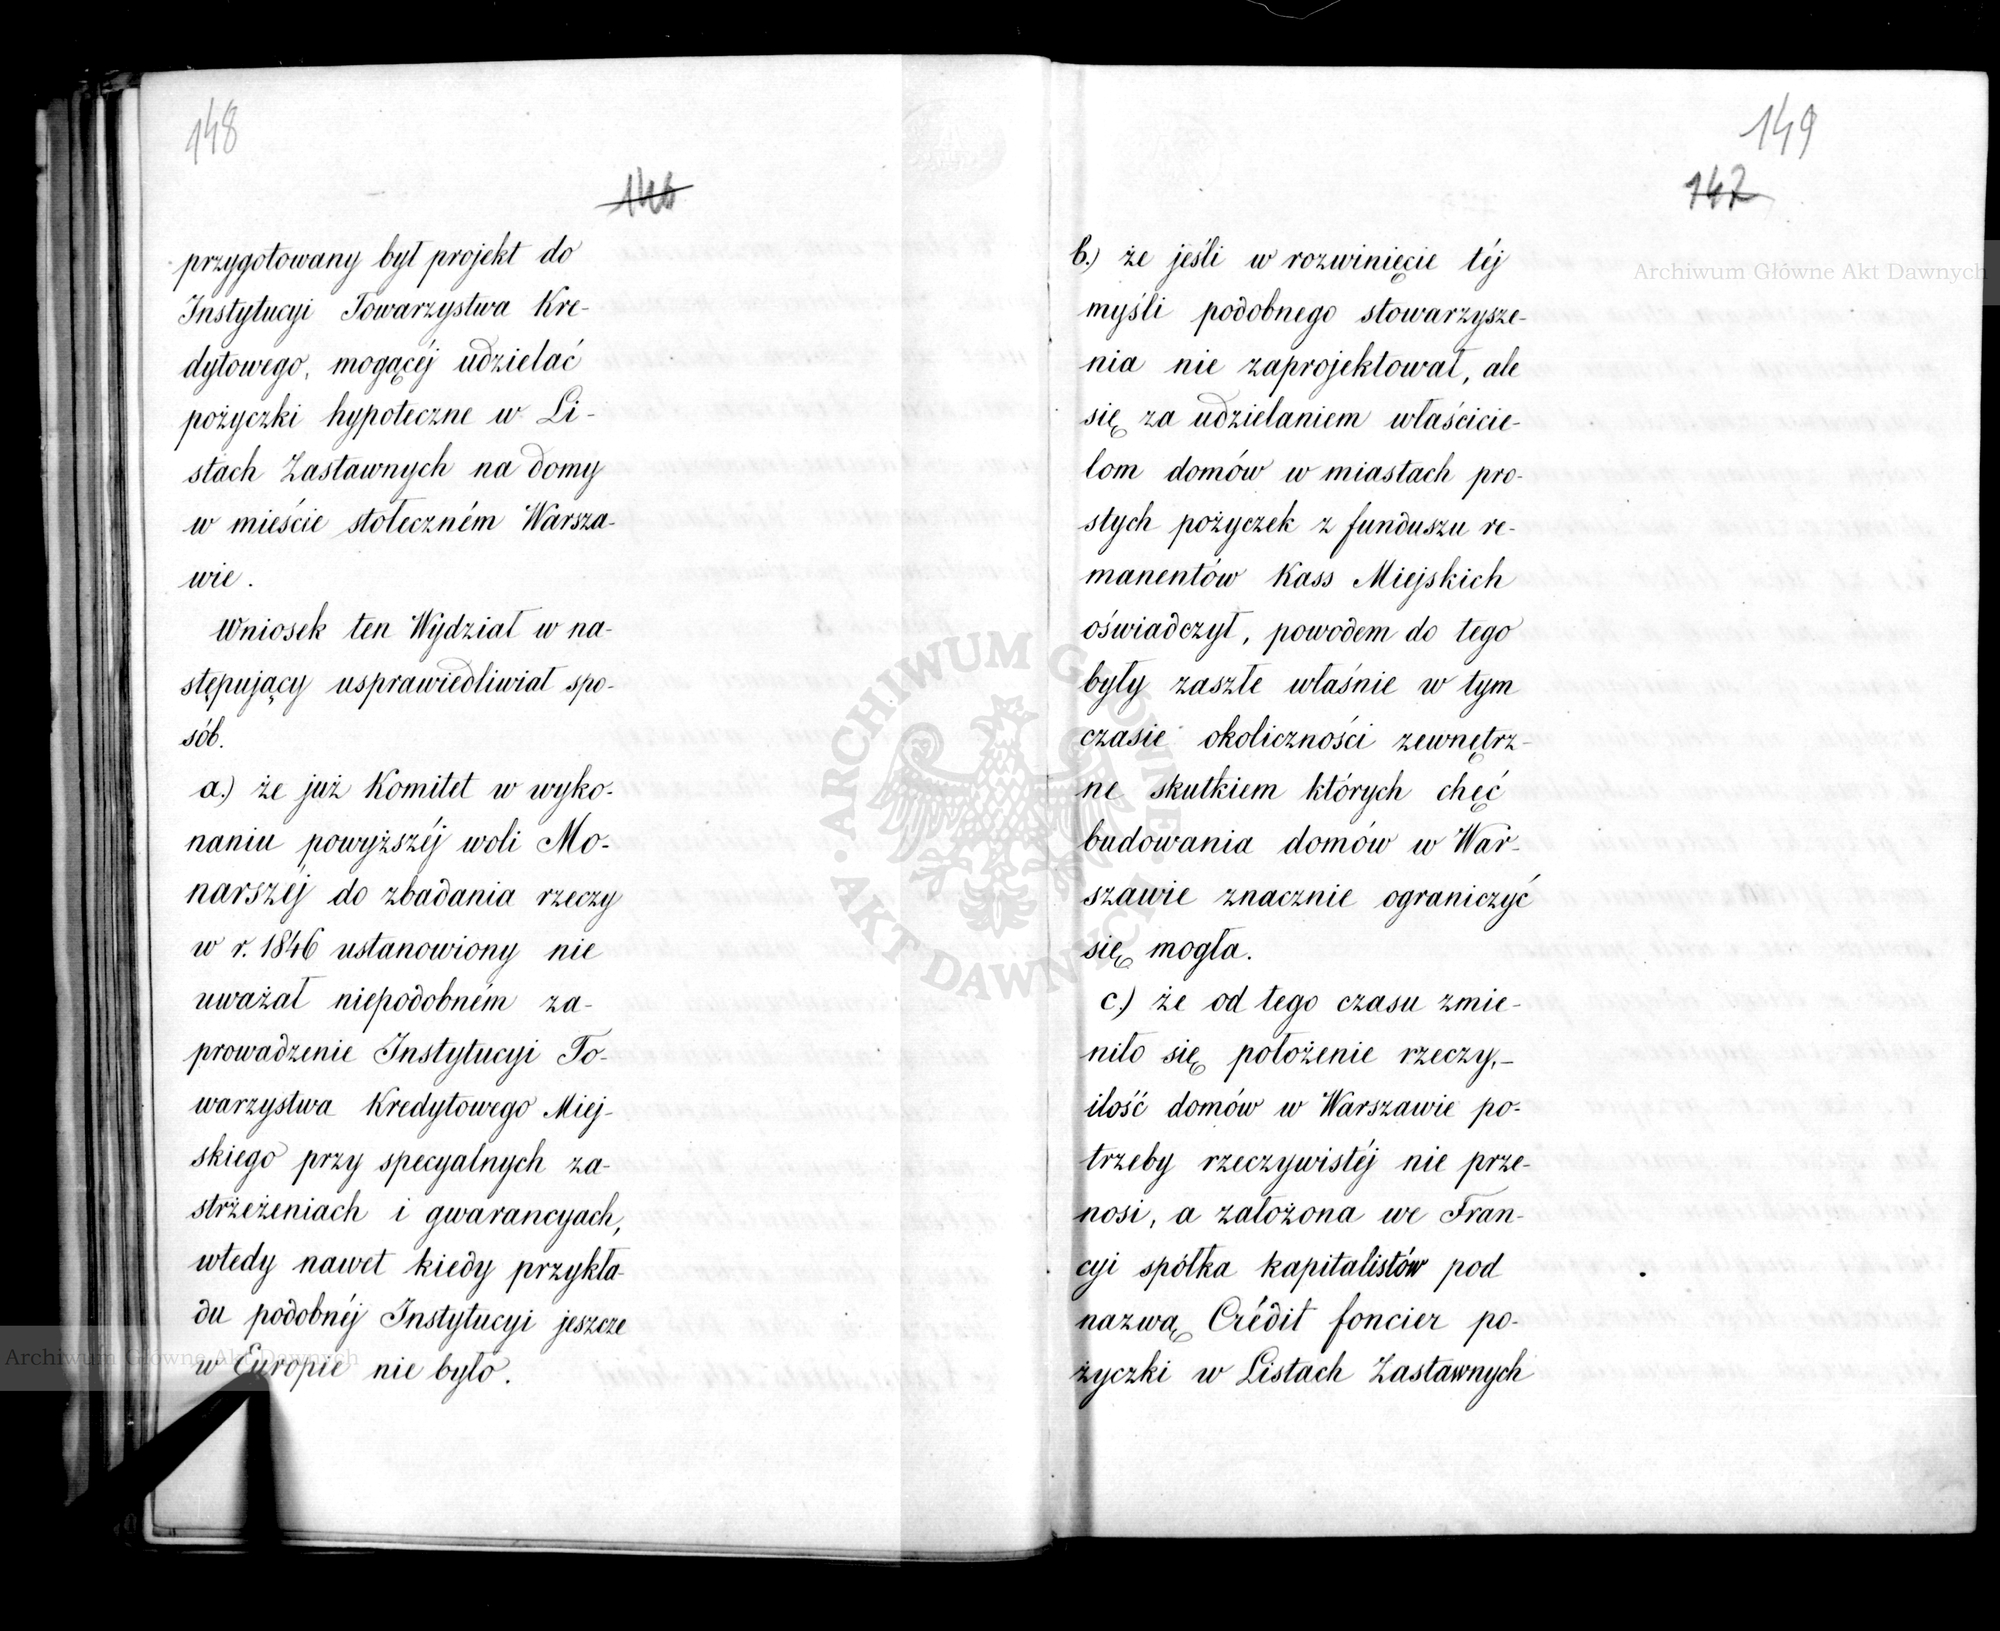 148
146
przygotowany był projekt do
Instytucyi Towarzystwa Kre-
dytowego, mogącéj udzielać
pożyczki hypoteczne w Li-
stach Zastawnych na domy
w mieście stołeczném Warsza-
wie.
Wniosek ten Wydział w na-
stępujący usprawiedliwiał spo-
sób.
a.) że już Komitet w wyko-
naniu powyższéj woli Mo-
narszéj do zbadania rzeczy
w r. 1846 ustanowiony nie
uważał niepodobném za-
prowadzenie Instytucyi To-
warzystwa Kredytowego Miej-
skiego przy specyalnych za-
strzeżeniach i gwarancyach,
wtedy nawet kiedy przykła-
du podobnéj Instytucyi jeszcze
w Europie nie było.
149
147
b.) że jeśli w rozwinięcie téj
myśli podobnego stowarzysze-
nia nie zaprojektował, ale
się za udzielaniem właścicie-
lom domów w miastach pro-
stych pożyczek z funduszu re-
manentów Kass Miejskich
oświadczył, powodem do tego
były zaszłe właśnie w tym
czasie okoliczności zewnętrz-
ne skutkiem których chęć
budowania domów w War-
szawie znacznie ograniczyć
się mogła.
c.) że od tego czasu zmie-
niło się położenie rzeczy,-
ilość domów w Warszawie po-
trzeby rzeczywistéj nie prze-
nosi, a założona we Fran-
cyi spółka kapitalistów pod
nazwą Crédit foncier po-
życzki w Listach Zastawnych
Archiwum Główne Akt Dawnych
Archiwum Główne Akt Dawnych
ARCHIWUM GŁÓWNE AKT DAWNYCH